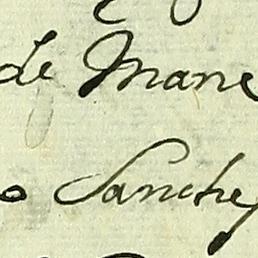 de Mane
o Sanchez